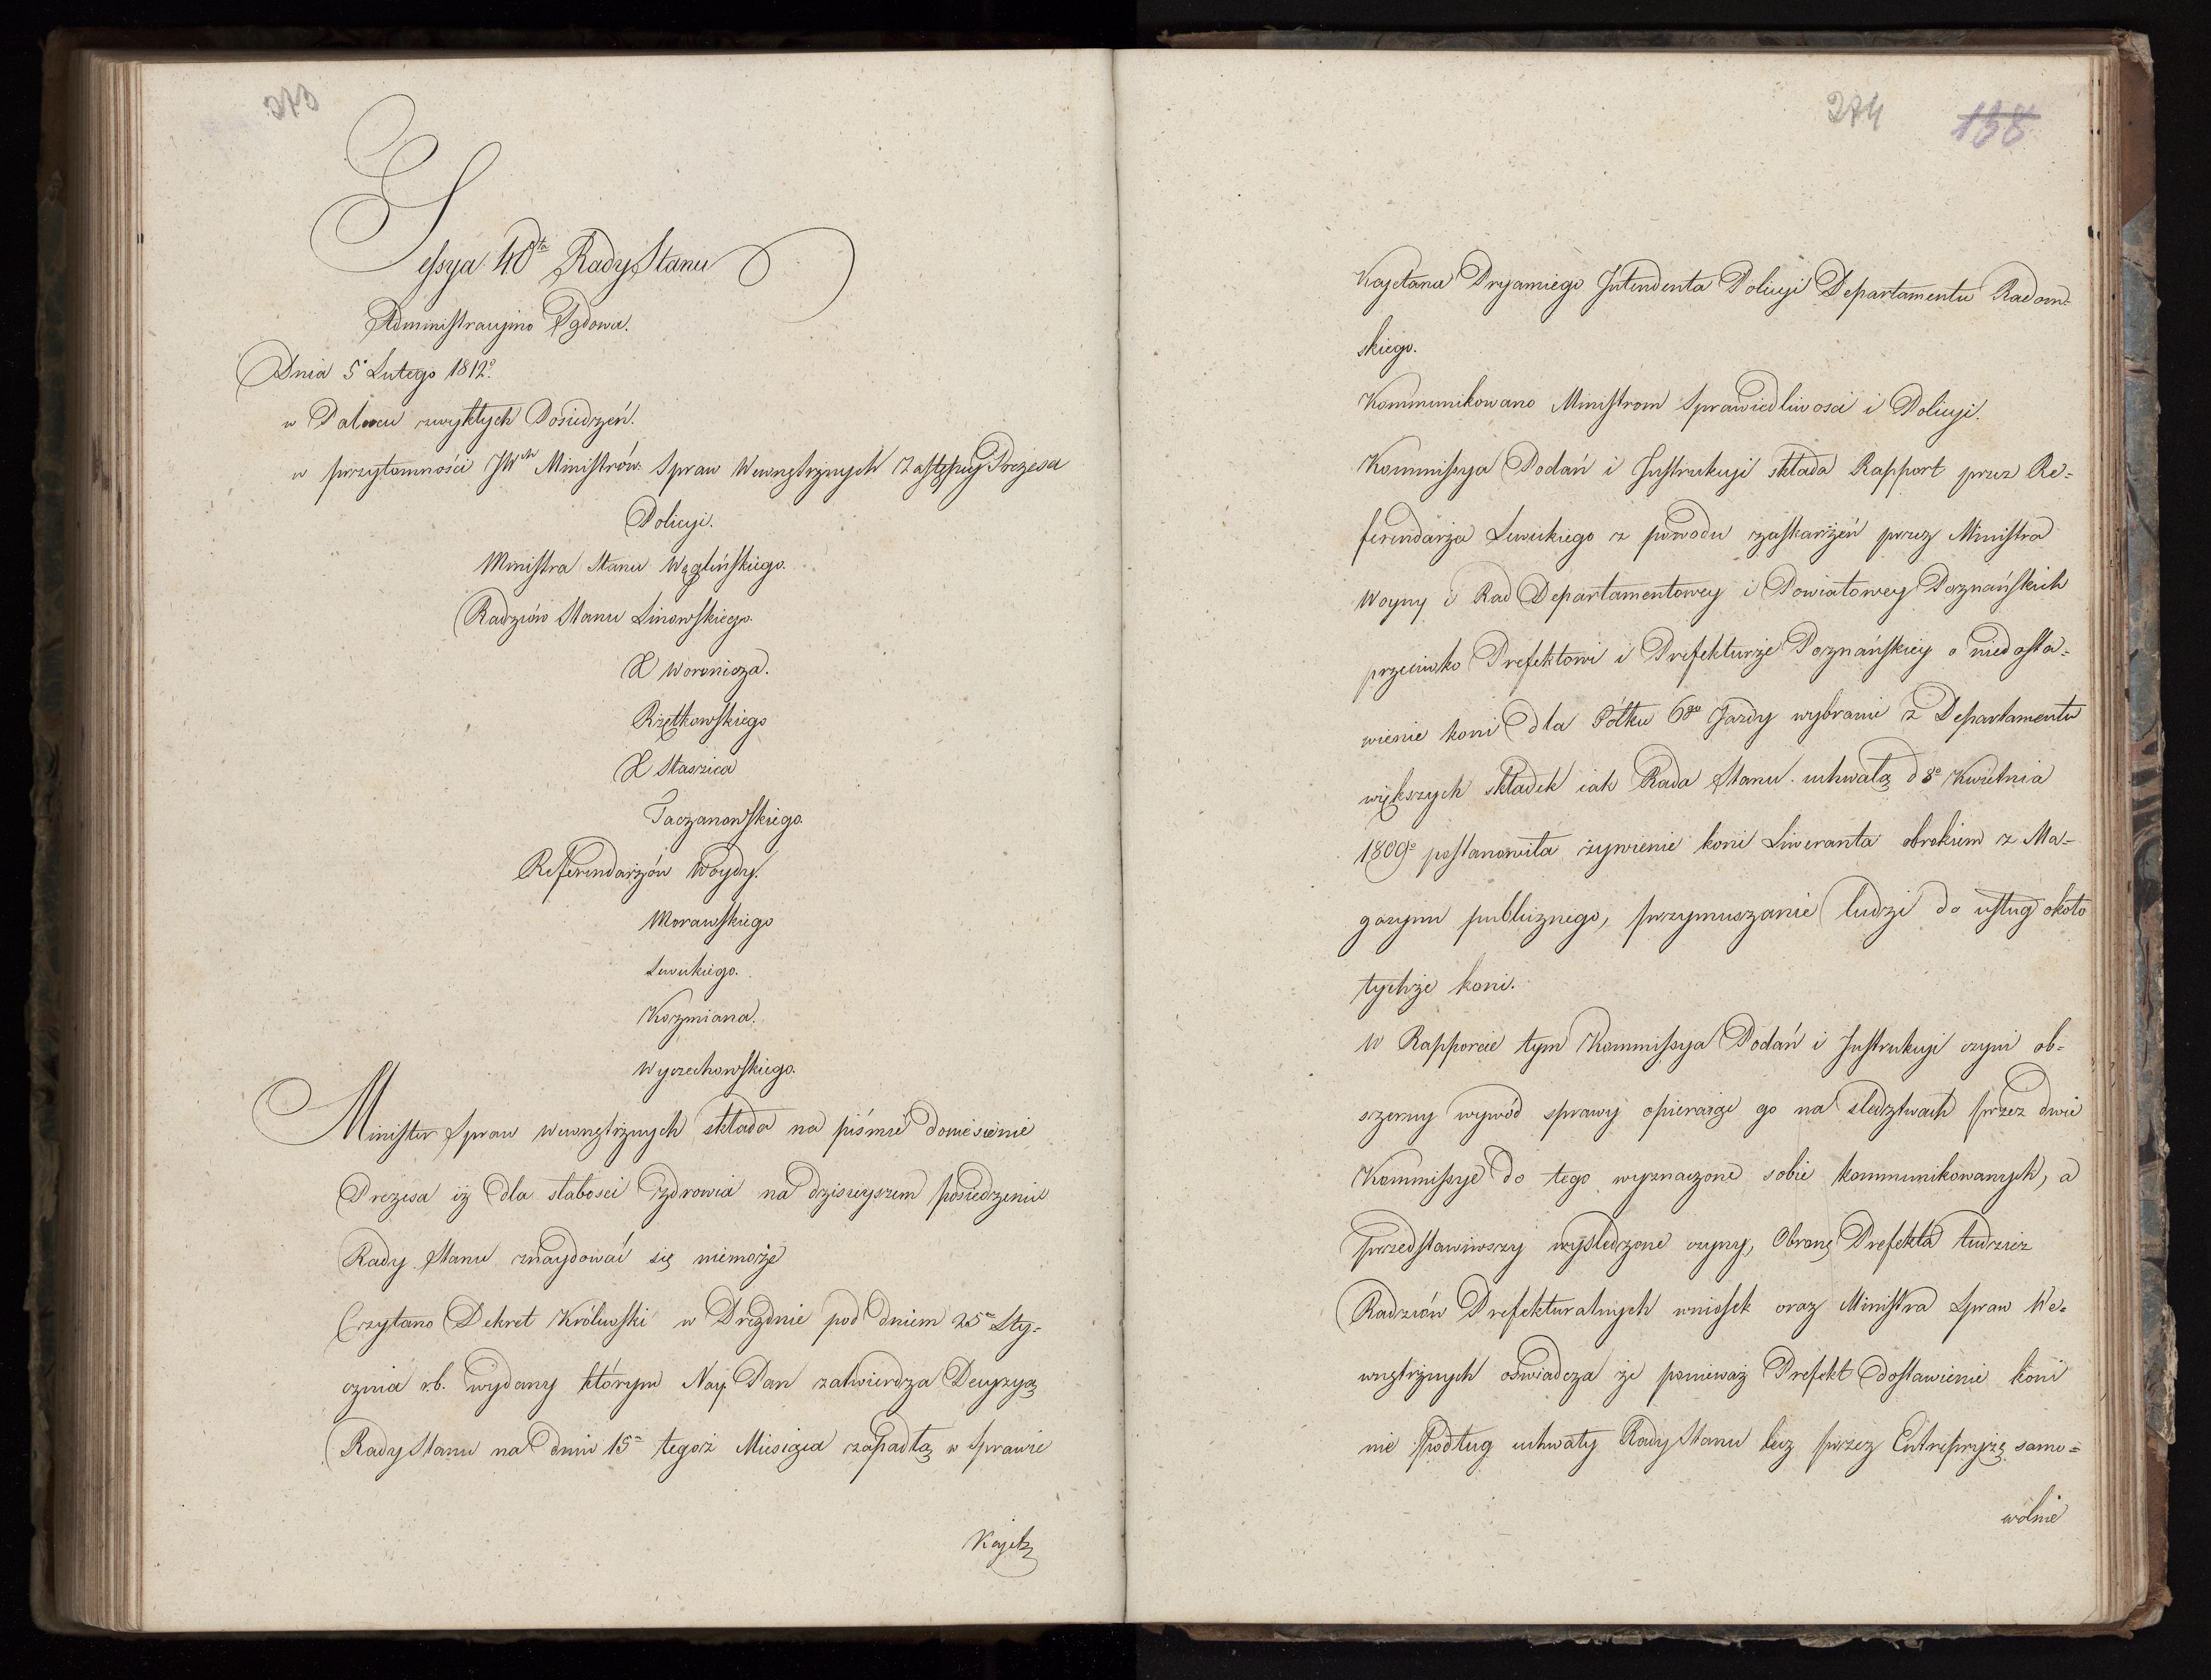 273
Sessya 40ta Rady Stanu
Administracyino Sądowa.
Dnia 5o Lutego 1812o.
w Pałacu zwykłych Posiedzeń.
w przytomności JWch Ministrów Spraw Wewnętrznych Zastępcy Prezesa
Policyi.
Ministra Stanu Węglińskiego.
Radzców Stanu Linowskiego.
X Woronicza.
Rzętkowskiego
X Staszica
Taczanowskiego.
Referendarzów Woydy.
Morawskiego
Lewickiego.
Kozmiana.
Wyczechowskiego.
Minister Spraw Wewnętrznych składa na piśmie doniesienie
Prezesa iż dla słabosci zdrowia na dzisieyszem posiedzeniu
Rady Stanu znaydować się niemoże
Czytano Dekret Królewski w Dreznie pod dniem 25m Sty=
cznia r.b. wydany którym Nay. Pan zatwierdza Decyzyą
Rady Stanu na dniu 15m tegoż Miesiąca zapadłą w Sprawie
Kajeta
274 138
Kajetana Intendenta Policyi Departamentu Radom=
skiego.
Kommunikowano Ministrom Sprawiedliwosci i Policyi.
Kommissya Podań i Instrukcyi składa Rapport przez Re=
ferendarza Lewickiego z powodu zaskarżeń przez Ministra
Woyny i Rad Departamentowey i Powiatowey Poznańskich
przeciwko Prefektowi i Prefekturze Poznańskiey o niedosta=
wienie koni dla Półku 6go Jazdy wybranie z Departamentu
większych składek iak Rada Stanu uchwałą d 8o Kwietnia
1809o postanowiła żywienie koni Liweranta obrokiem z Ma=
gazynu publicznego, przymuszanie ludzi do usług około
tychże koni.
W Rapporcie tym Kommissya Podań i Instrukcyi czyni ob=
szerny wywód sprawy opieraiąc go na sledztwach przez dwie
Kommissye do tego wyznaczone sobie kommunikowanych, a
przedstawiwszy wysledzone czyny, Obronę Prefekta tudzież
Radzców Prefekturalnych wniosek oraz Ministra Spraw We=
wnętrznych oświadcza że ponieważ Prefekt dostawienie koni
nie podług uchwały Rady Stanu lecz przez Entrepryzę samo=
wolnie